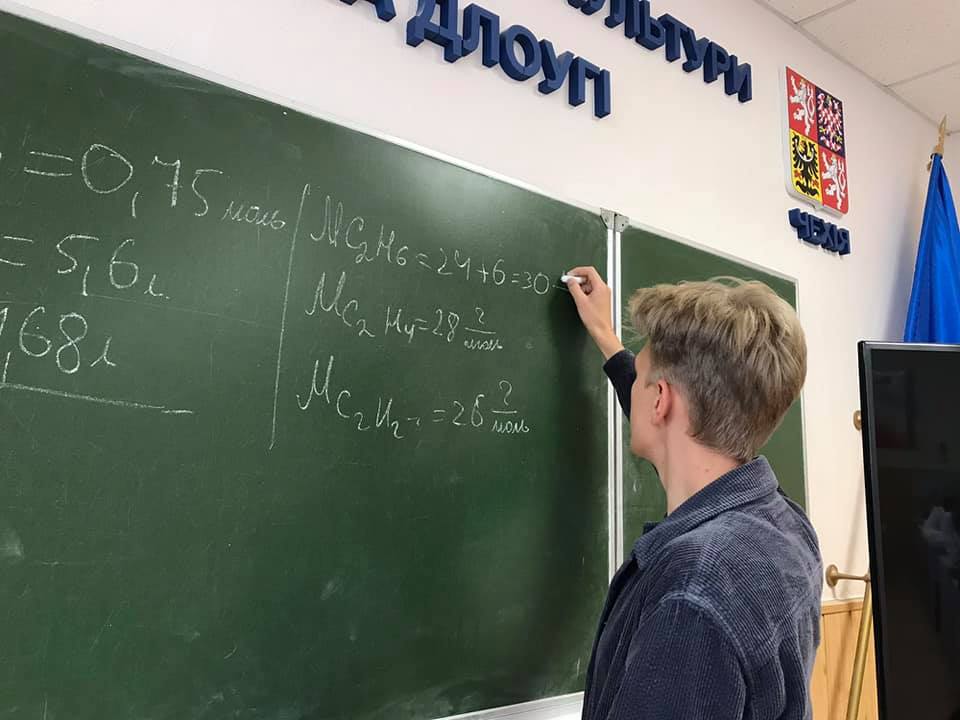 ДЛОУГІ
ЧЕХІЯ
= 0,75 моль
= 5,6 л.
,68 л
MC₂H₆ = 24 + 6 = 30
MC₂H₄ = 28 г/моль
MC₂H₂ = 26 г/моль